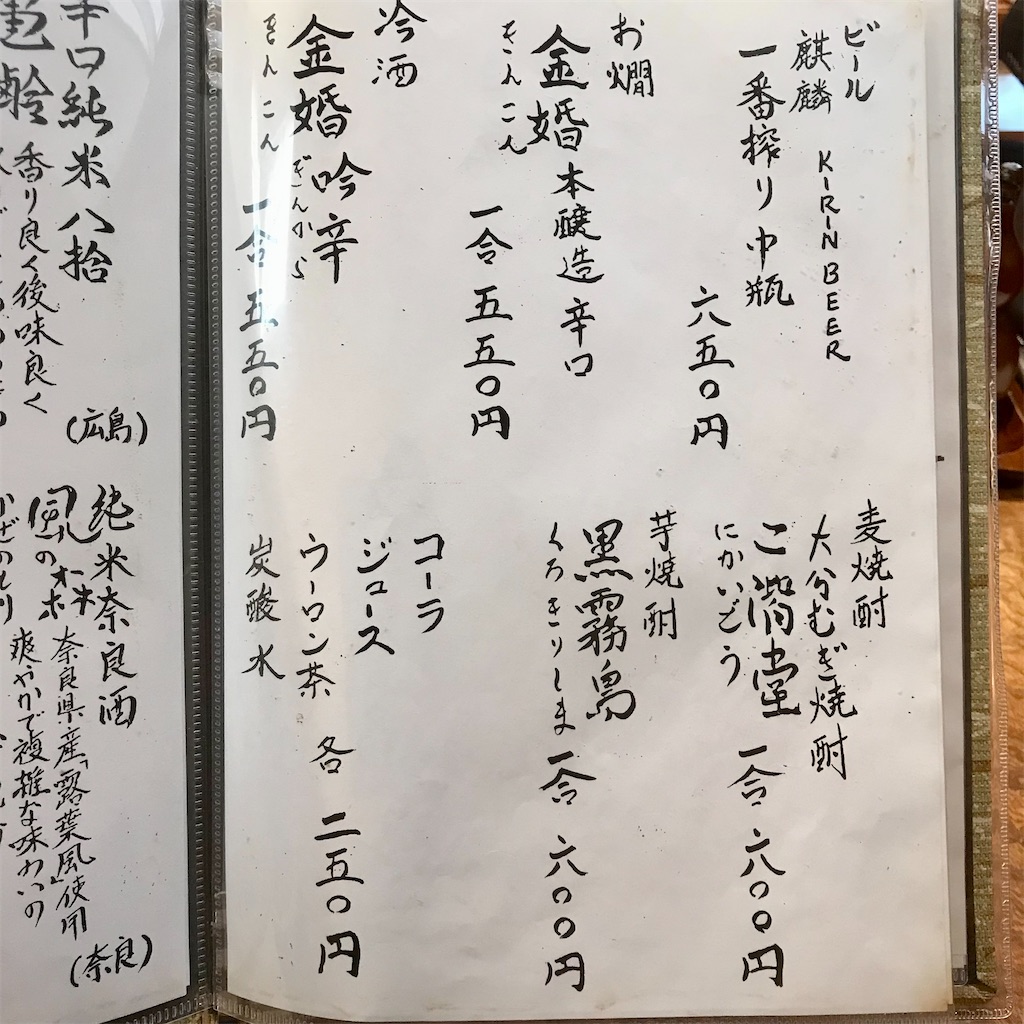 ビール
麒麟 KIRIN BEER
一番搾り 中瓶
六五〇円
お燗
金婚 本醸造 辛口
きんこん
一合 五五〇円
冷酒
金婚 吟辛
きんこん ぎんから
一合 五五〇円
麦焼酎
大分むぎ焼酎
二階堂
にかいどう
一合 六〇〇円
芋焼酎
黒霧島
くろきりしま
一合 六〇〇円
コーラ
ジュース
ウーロン茶 各 二五〇円
炭酸水
辛口純米 八拾
亀齢
香り良く後味良く
(広島)
純米奈良酒
風の
奈良県産「露葉風」使用
爽やかで複雑な味わいの
(奈良)